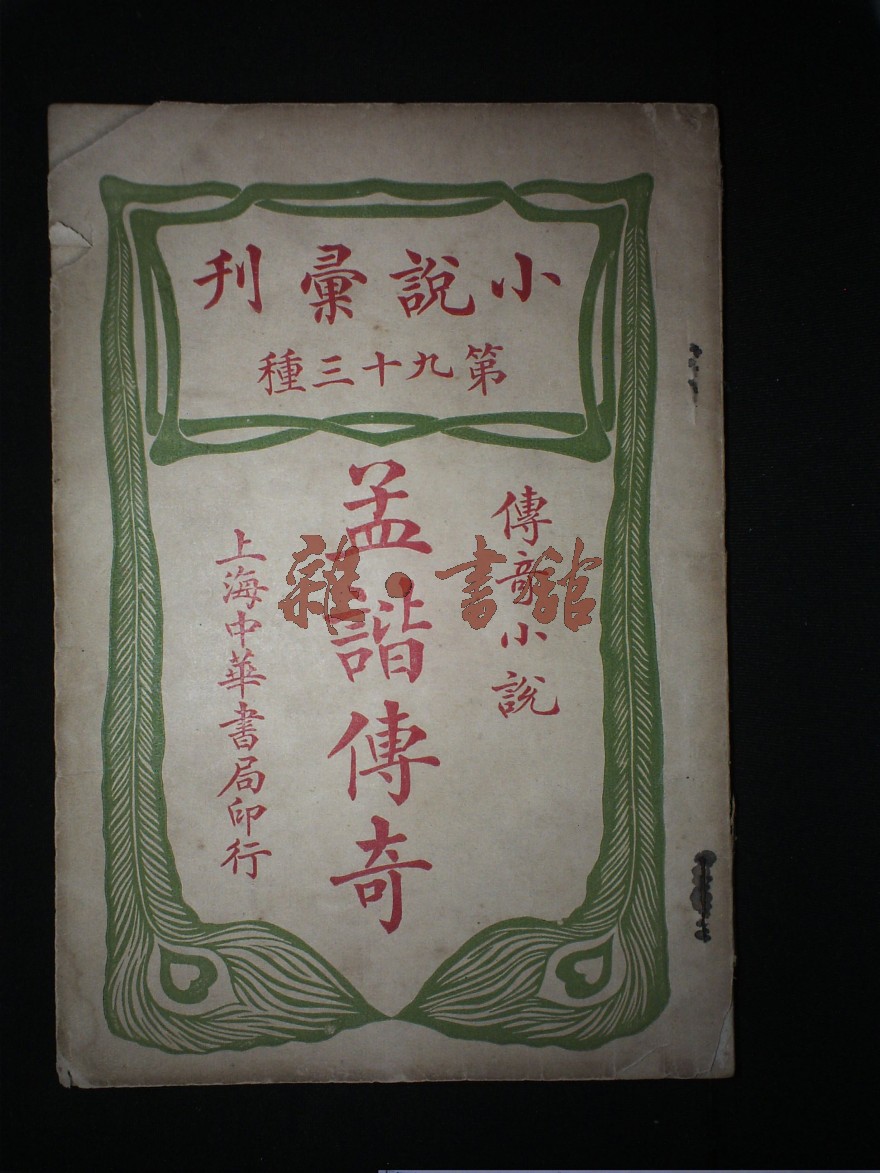 小說彙刊
第九十三種
傳奇小說
孟諧傳奇
上海中華書局印行
雜·書館